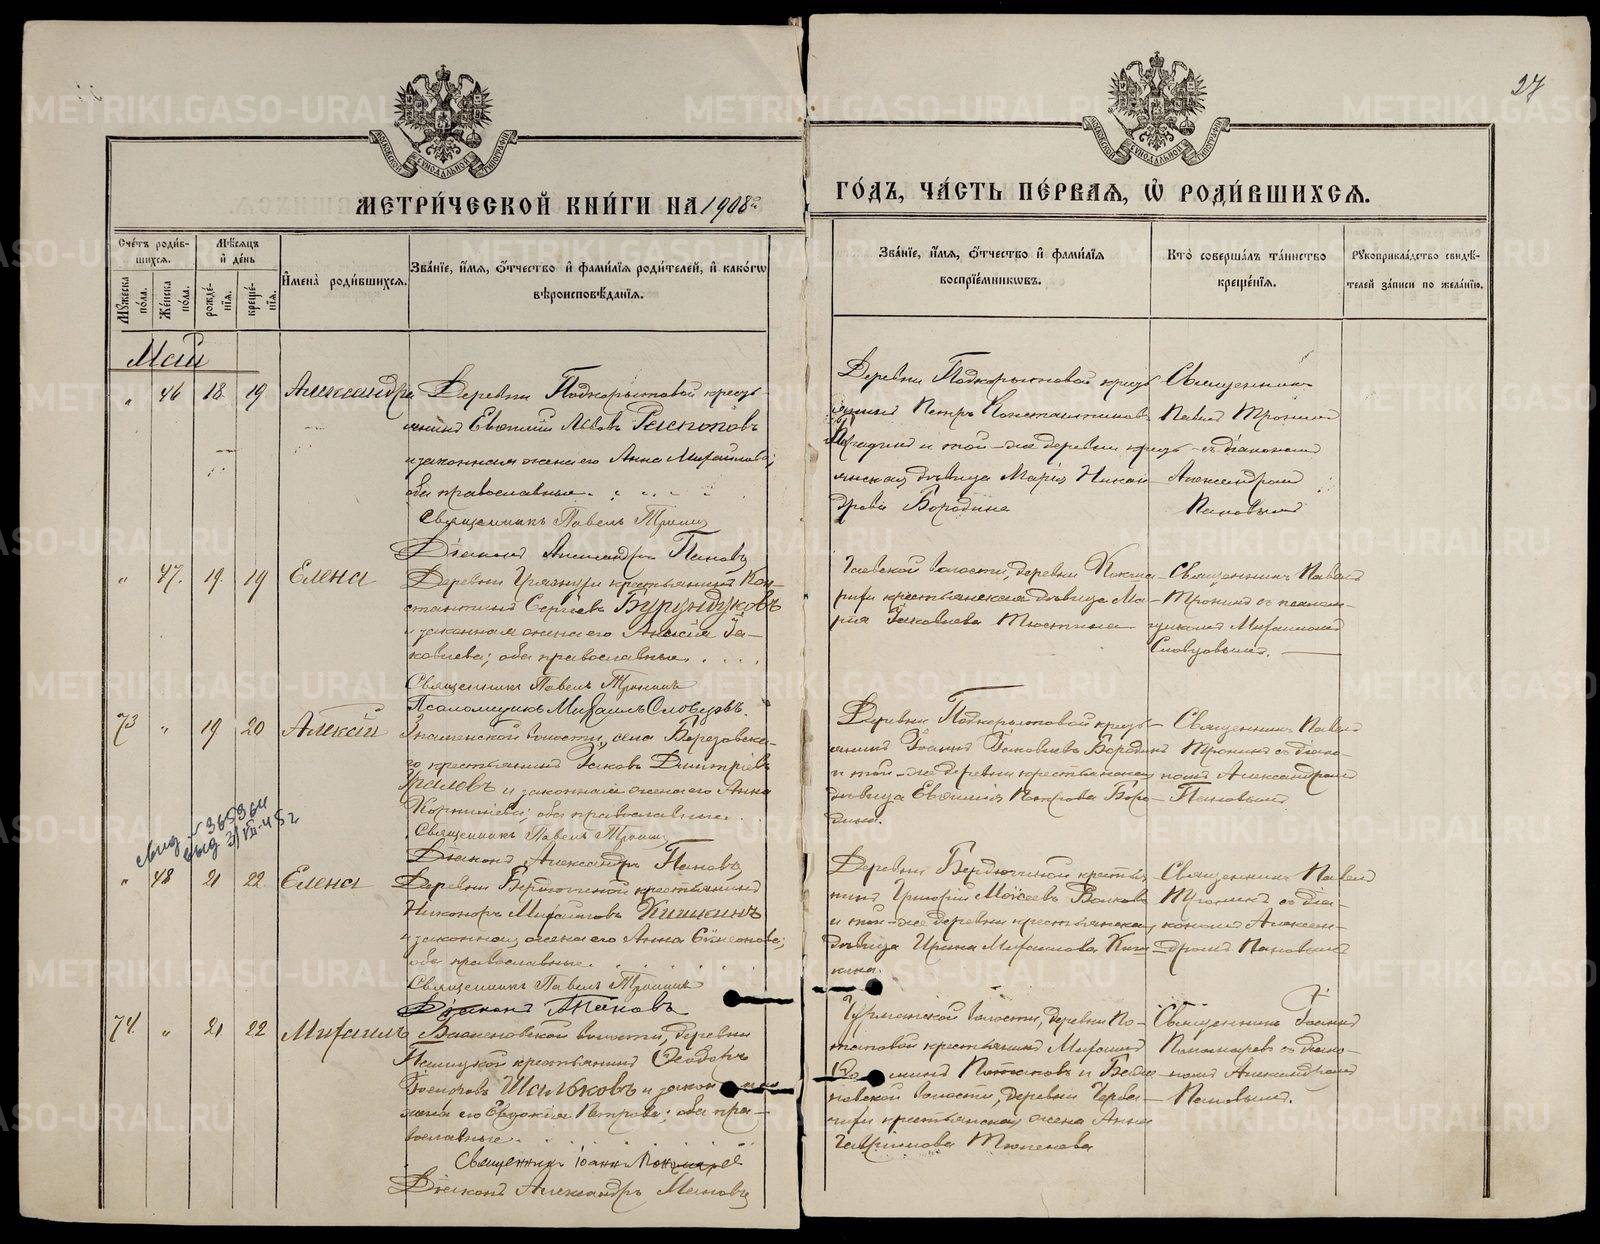 27
МОСКОВСКОЙ СѴНОДАЛЬНОЙ ТИПОГРАФІИ
МОСКОВСКОЙ СѴНОДАЛЬНОЙ ТИПОГРАФІИ
МЕТРИ́ЧЕСКОЙ КНИ́ГИ НА 1908 ГО́ДЪ, ЧА́СТЬ ПЕ́РВАѦ, Ѡ РОДИ́ВШИХСѦ.
Сче́тъ роди́в-
шихсѧ.
Мꙋжеска по́ла.
Же́нска по́ла.
Мѣ́сѧцъ
и҆ де́нь
рожде́-
нїѧ.
креще́-
нїѧ.
И҆мена̀ роди́вшихсѧ.
Зва́нїе, и҆́мѧ, ѻ҆́тчество и҆ фами́лїѧ роди́телей, и҆ како́гѡ
вѣроисповѣ́данїѧ.
Зва́нїе, и҆́мѧ, ѻ҆́тчество и҆ фами́лїѧ
воспрїе́мникѡвъ.
Кто̀ соверша́лъ та́инство
креще́нїѧ.
Рꙋкоприкла́дство свидѣ́-
телей за́писи по жела́нїю.
Май
„ 46 18 19 Александра
Деревни Подкорытовой кресть-
янинъ Евѳимій Львовъ
и законная жена его Анна Михайлова;
оба православные.
Священникъ Павелъ Тронинъ
Діаконъ Александръ Пановъ
Деревни Подкорытовой кресть-
янинъ Петръ Константиновъ
и той-же деревни кресть-
янская дѣвица Марія Никан-
дрова Бородина
Священникъ
Павелъ Тронинъ
съ діакономъ
Александромъ
Пановымъ
„ 47. 19. 19 Елена
Деревни Грязнухи крестьянинъ Кон-
стантинъ Сергѣевъ Бурундуковъ
и законная жена его Анисія Іа-
ковлева; оба православные.
Священникъ Павелъ Тронинъ
Псаломщикъ Михаилъ Словцовъ.
волости, деревни
крестьянская дѣвица Ма-
рія Іаковлева
Священникъ Павелъ
Тронинъ съ псалом-
щикомъ Михаиломъ
Словцовымъ.
73 „ 19 20 Алексій
Знаменской волости, села Березовска-
го крестьянинъ Іаковъ Димитріевъ
и законная жена его Анна
оба православные.
Священникъ Павелъ Тронинъ
Діаконъ Александръ Пановъ
Деревни Подкорытовой кресть-
янинъ Іоаннъ Іаковлевъ Бородинъ
и той-же деревни крестьянская
дѣвица Евѳимія Петрова Боро-
дина.
Священникъ Павелъ
Тронинъ съ діако-
номъ Александромъ
Пановымъ.
„ 48 21 22 Елена
Деревни Бердюгиной крестьянинъ
Никоноръ Михайловъ Кишкинъ
и законная жена его Анна Сѵмеонова;
оба православные.
Священникъ Павелъ Тронинъ
Діаконъ А Пановъ
Деревни Бердюгиной крестья-
нинъ Григорій Моѵсеевъ Волковъ
и той-же деревни крестьянская
дѣвица Ирина Михайлова Киш-
кина.
Священникъ Павелъ
Тронинъ съ діа-
кономъ Алексан-
дромъ Пановымъ
74. „ 21 22 Михаилъ
волости, деревни
крестьянинъ Ѳеодоръ
Шальковъ и законная
жена его Евдокія Петрова; оба пра-
вославные.
Священникъ Іоаннъ Пономаревъ
Діаконъ Александръ Пановъ
волости, деревни По-
таповой крестьянинъ Михаилъ
Потаповъ и
волости, деревни
крестьянская жена Анна
Священникъ Іоаннъ
Пономаревъ съ діако-
номъ Александромъ
Пановымъ.
METRIKI.GASO-URAL.RU